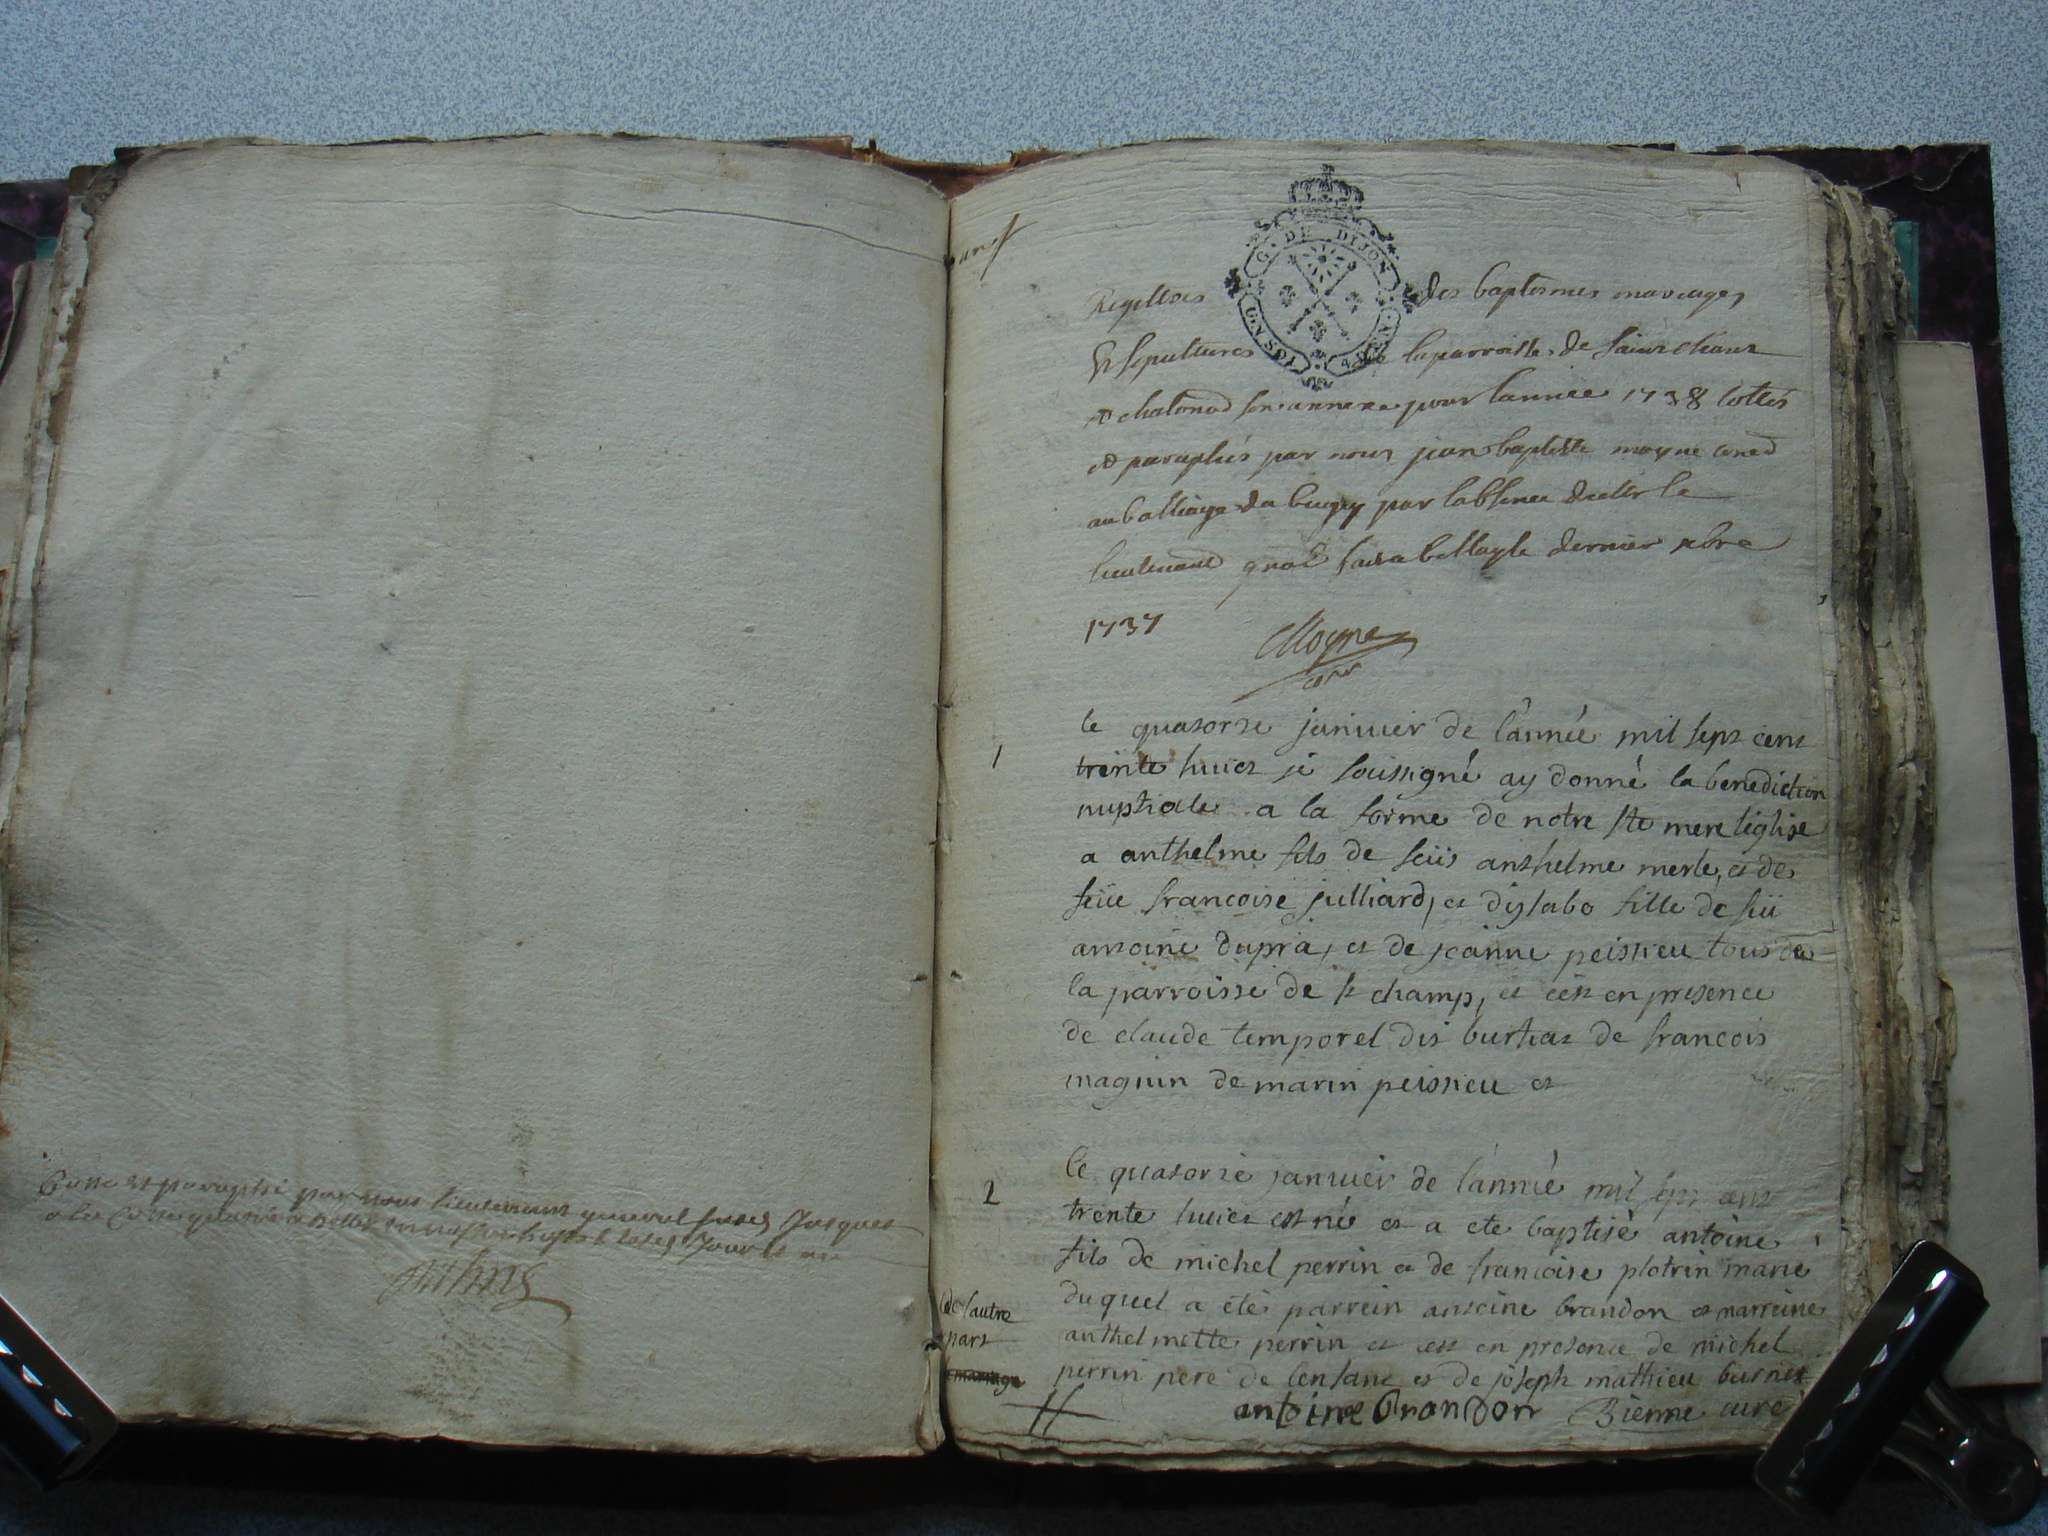 Cotte et paraphé par nous lieutenant general susd Jusques
a la Cotte
G. DE DIJON
UN SOL
Registres des baptesmes mariages
Et sepultures de la parroisse de saint Chanz
et chatonod son annexe pour lannée 1738 cottés
et paraphés par nous jean baptiste moyne cone
au balliage du bugey par labsence du
lieutenant gnal fait a belley le dernier xbre
1737
Moyne
1
le quatorze janvier de l'année mil sept cent
trente huict je soussigné ay donné la benediction
nuptiale a la forme de notre ste mere leglise
a anthelme fils de feü anthelme merle, et de
feüe francoise julliard, et dysabo fille de feü
antoine dupra, et de jeanne peissieu tous de
la parroisse de st champ, et cest en presence
de claude temporel dit burtaz de francois
magnin de marin peissieu et
2
le quatorze janvier de l'année mil sept cent
trente huict est né et a eté baptisé antoine
fils de michel perrin et de francoise plotrin marie
duquel a eté parrein antoine brandon et marreine
anthelmette perrin et cest en presence de michel
perrin pere de lenfant et de joseph mathieu burnet
antoine Brandon Bienne curé
de l'autre
part
mariage